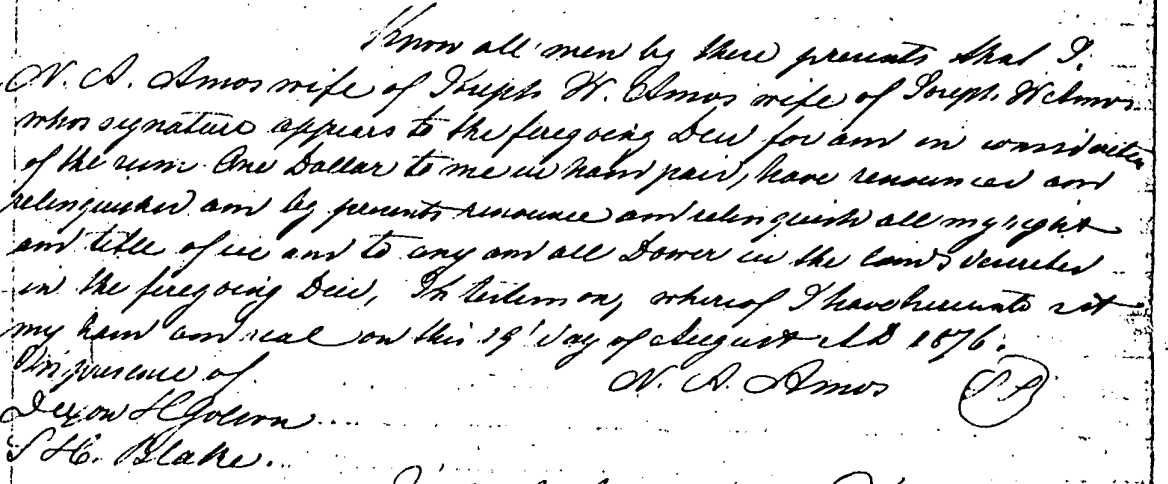 Know all men by these presents that I.
N. A. Amos wife of Joseph W. Amos wife of Joseph W Amos
whos signature appears to the foregoing Deed for and in consideration
of the sum One Dollar to me in hand paid, have renounced and
relinquished and by presents renounce and relinquish all my right
and title of in and to any and all Dower in the lands described
in the foregoing Deed, In testimony whereof I have hereunto set
my hand and seal on this 19' day of August A D 1876.
In presence of
N. A. Amos
H
S H. Blake.